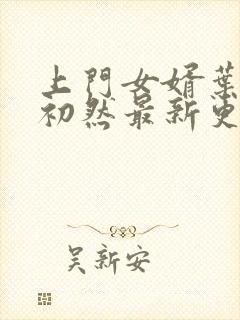 上門女婿葉
初然最新更
吴新安